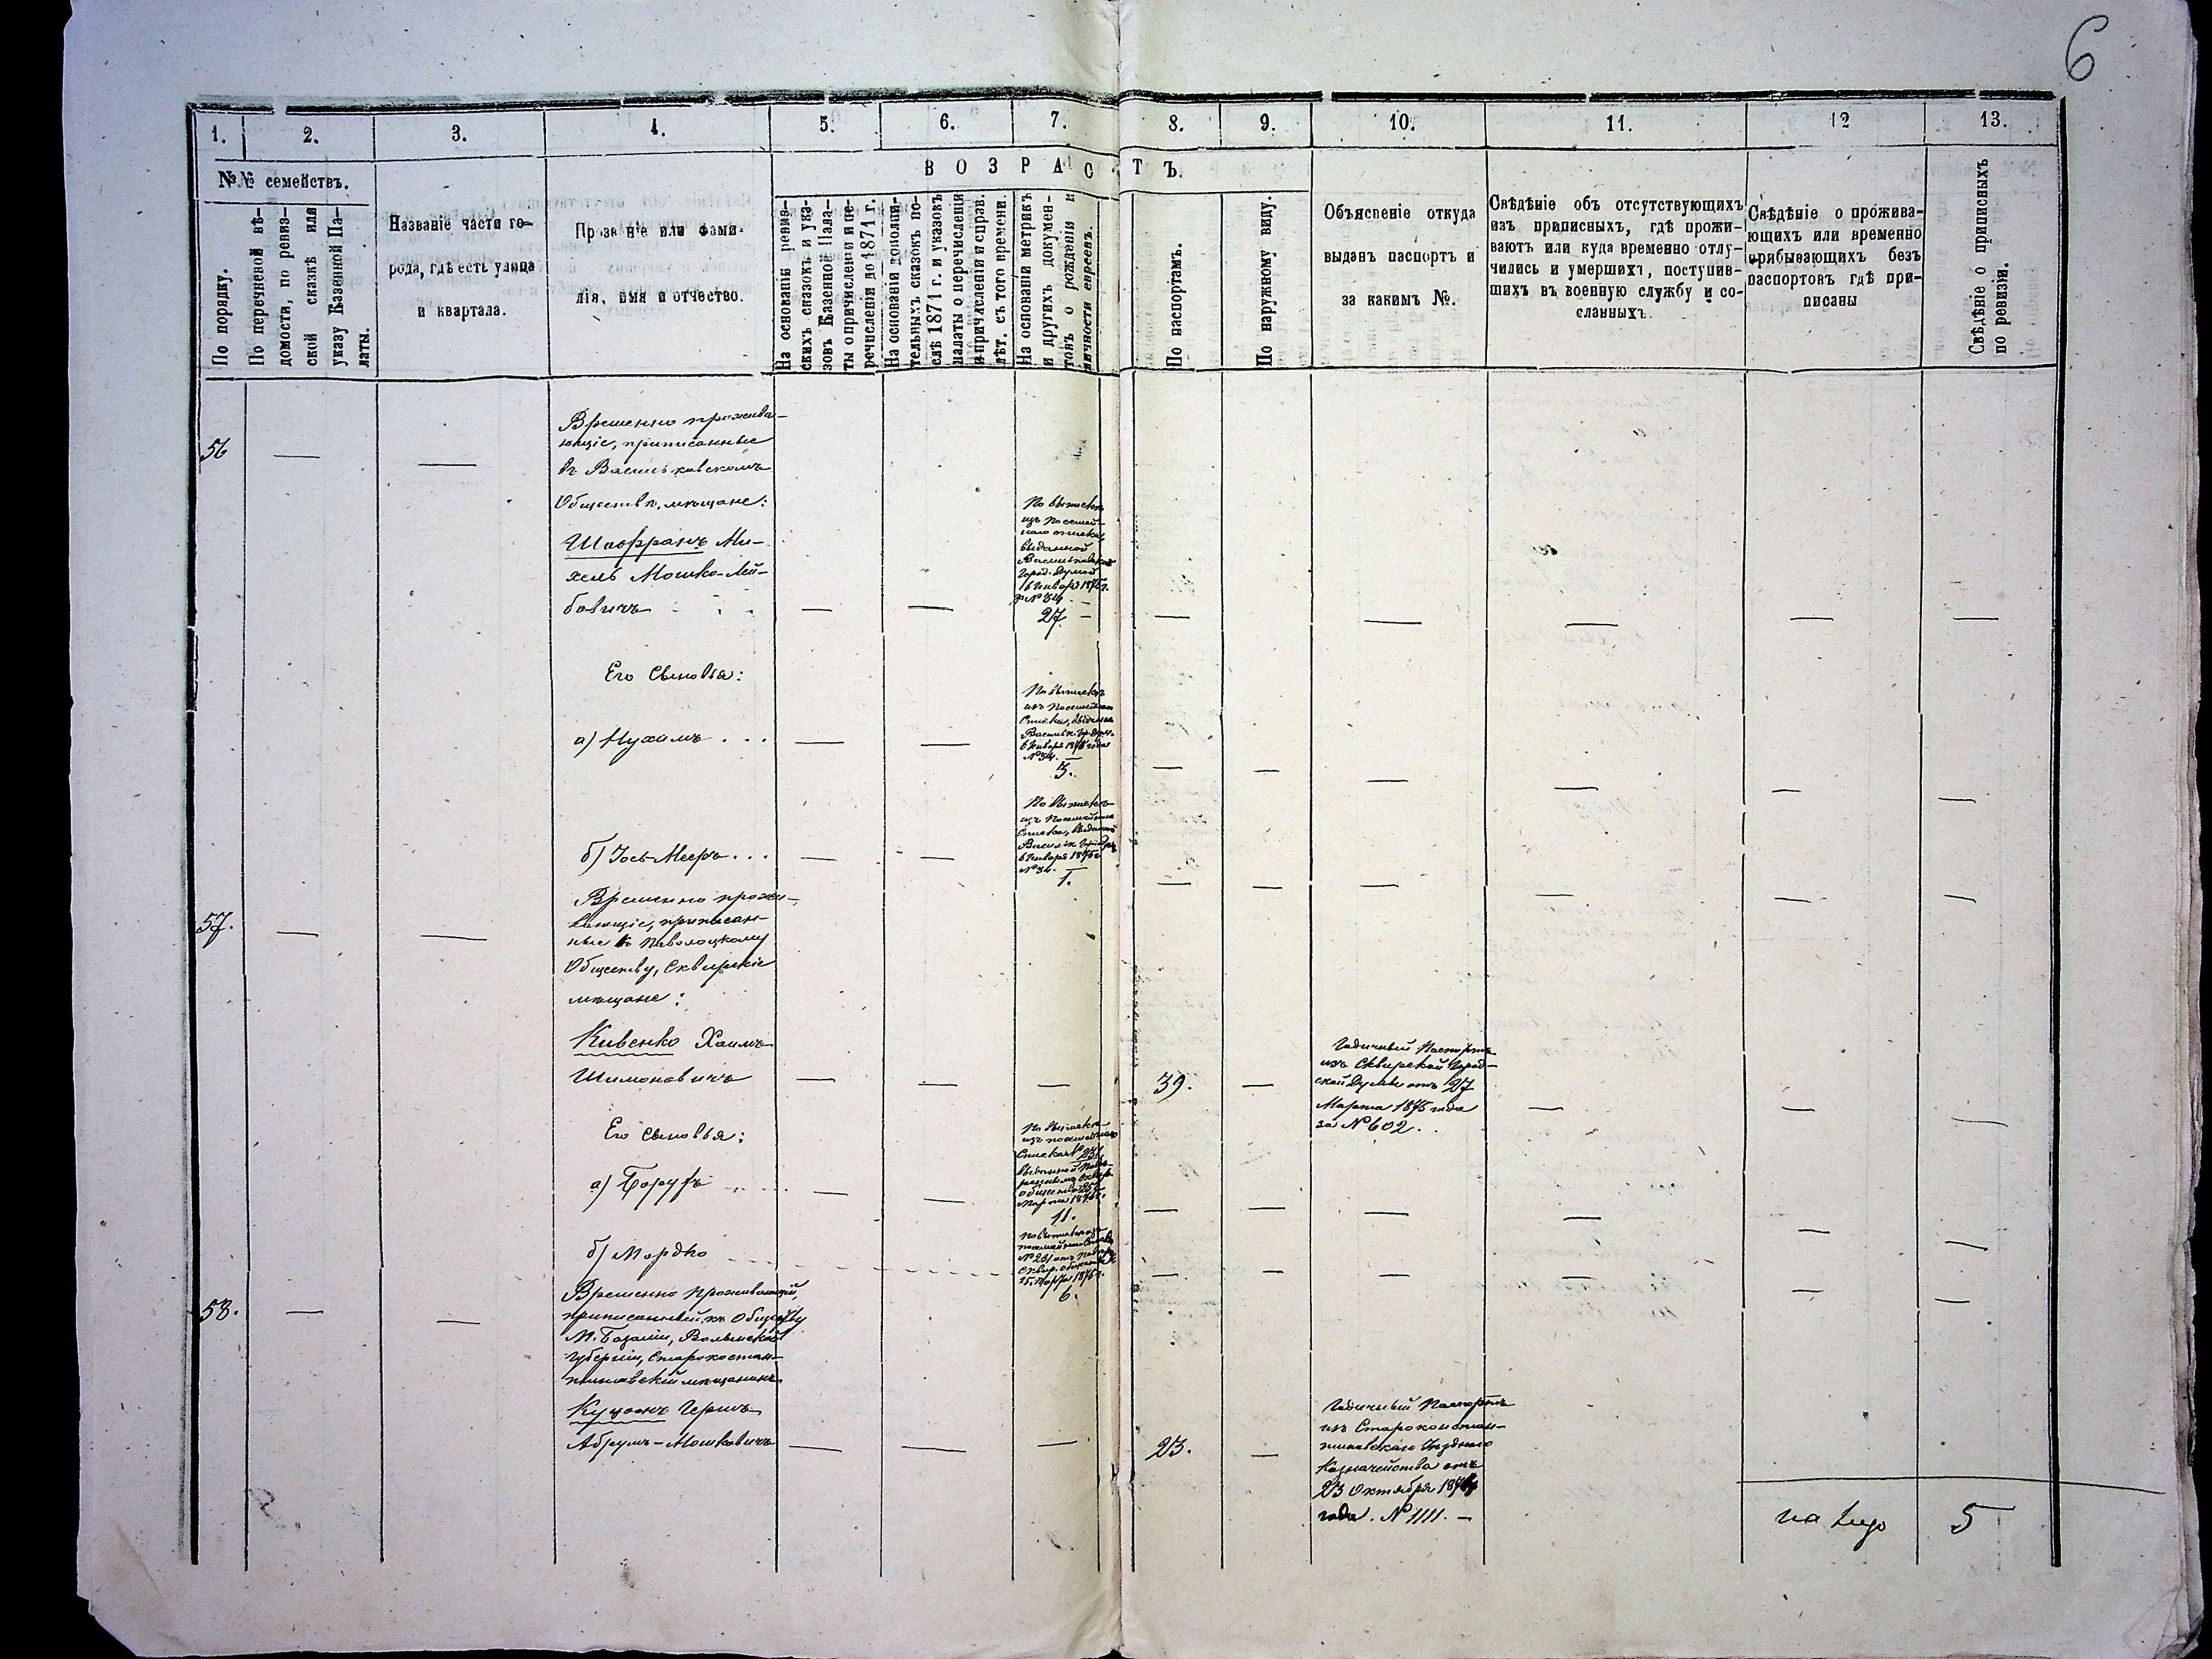 6
1. 2. 3. 4. 5. 6. 7. 8. 9. 10. 11. 12 13.
№№ семействъ.
По порядку.
По перечневой вѣ-
домости, по ревиз-
ской сказкѣ или
указу Казенной Па-
латы.
Названіе части го-
рода, гдѣ есть улица
и квартала.
Прозваніе или фами-
лія, имя и отчество.
ВОЗРАСТЪ.
На основаніи ревиз-
скихъ сказокъ и ука-
зовъ Казенной Пала-
ты о причисленіи и пе-
речисленіи до 1871 г.
На основаніи дополни-
тельныхъ сказокъ по-
слѣ 1871 г. и указовъ
палаты о перечисленіи
и причисленіи и справ.
лѣт. съ того времени.
На основаніи метрикъ
и другихъ докумен-
товъ о рожденіи и
личности евреевъ.
По паспортамъ.
По наружному виду.
Объясненіе откуда
выданъ паспортъ и
за какимъ №.
Свѣдѣніе объ отсутствующихъ
изъ приписныхъ, гдѣ прожи-
ваютъ или куда временно отлу-
чились и умершихъ, поступив-
шихъ въ военную службу и со-
сланныхъ.
Свѣдѣніе о прожива-
ющихъ или временно
прибывающихъ безъ
паспортовъ гдѣ при-
писаны
Свѣдѣніе о приписныхъ
по ревизіи.
56 — —
Временно прожива-
ющіе, приписанные
въ Васильковскомъ
Обществѣ, мѣщане:
Шафранъ Ми-
хель Мошко-Лей-
бовичъ — —
По выпискѣ
изъ посемей-
наго списка,
выданной
Васильковской
Город. Думой
16 Января 1875 г.
за № 34 —
27 — — — — — —
Его Сыновья:
а) Нухимъ . . . — —
По выпискѣ
изъ Посемейнаго
Списка, выданной
Васильк. Гор. Думой
6 Января 1875 года
№ 34. —
3. — — — — — —
б) Іось-Мееръ . . . — —
По выпискѣ
изъ Посемейнаго
Списка, выданной
Васильк. Гор. Думой
6 Января 1875 г.
№ 34. —
1. — — — — — —
57. — —
Временно прожи-
вающіе, приписан-
ные къ Паволоцкому
Обществу, Сквирскіе
мѣщане:
Кивенко Хаимъ
Шимоновичъ — — — 39. —
Годичный Паспортъ
изъ Сквирской Город-
ской Думы отъ 27
Марта 1875 года
за № 602. — — —
Его Сыновья:
а) Борухъ — —
По выпискѣ
изъ посемейнаго
Списка № 231
выданной
общества 25
Марта 1875 г.
11. — — — — — —
б) Мордко
№ 231
Сквир.
25 Марта 1875 г.
6. — — — — — —
58. — —
Временно Проживающій,
приписанный къ Обществу
М. Базаліи, Волынской
Губерніи, Старокостан-
тиновскій мѣщанинъ
Куцонъ Гершъ
Абрумъ-Мошковичъ — — — 23. —
Годичный Паспортъ
изъ Старокостан-
тиновскаго Уѣзднаго
Казначейства отъ
23 Октября 1874
года. № 1111. —
на лицо 5